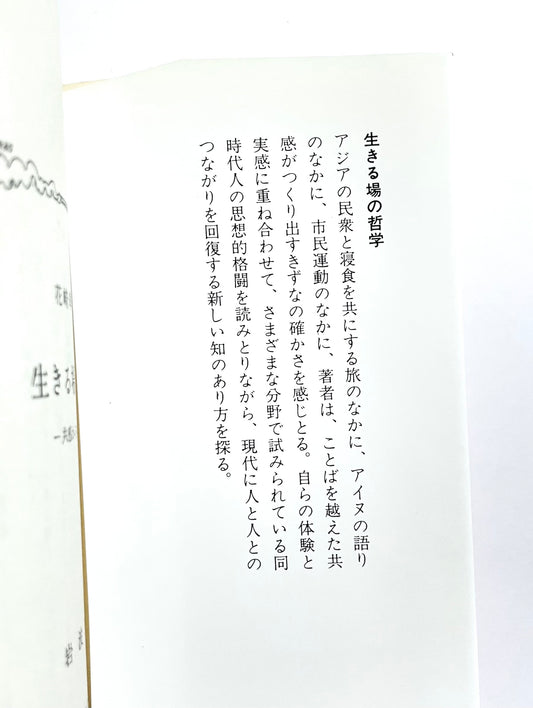 生きる場の哲学
アジアの民衆と寝食を共にする旅のなかに、アイヌの語り
のなかに、市民運動のなかに、著者は、ことばを越えた共
感がつくり出すきずなの確かさを感じとる。自らの体験と
実感に重ね合わせて、さまざまな分野で試みられている同
時代人の思想的格闘を読みとりながら、現代に人と人との
つながりを回復する新しい知のあり方を探る。
生きる